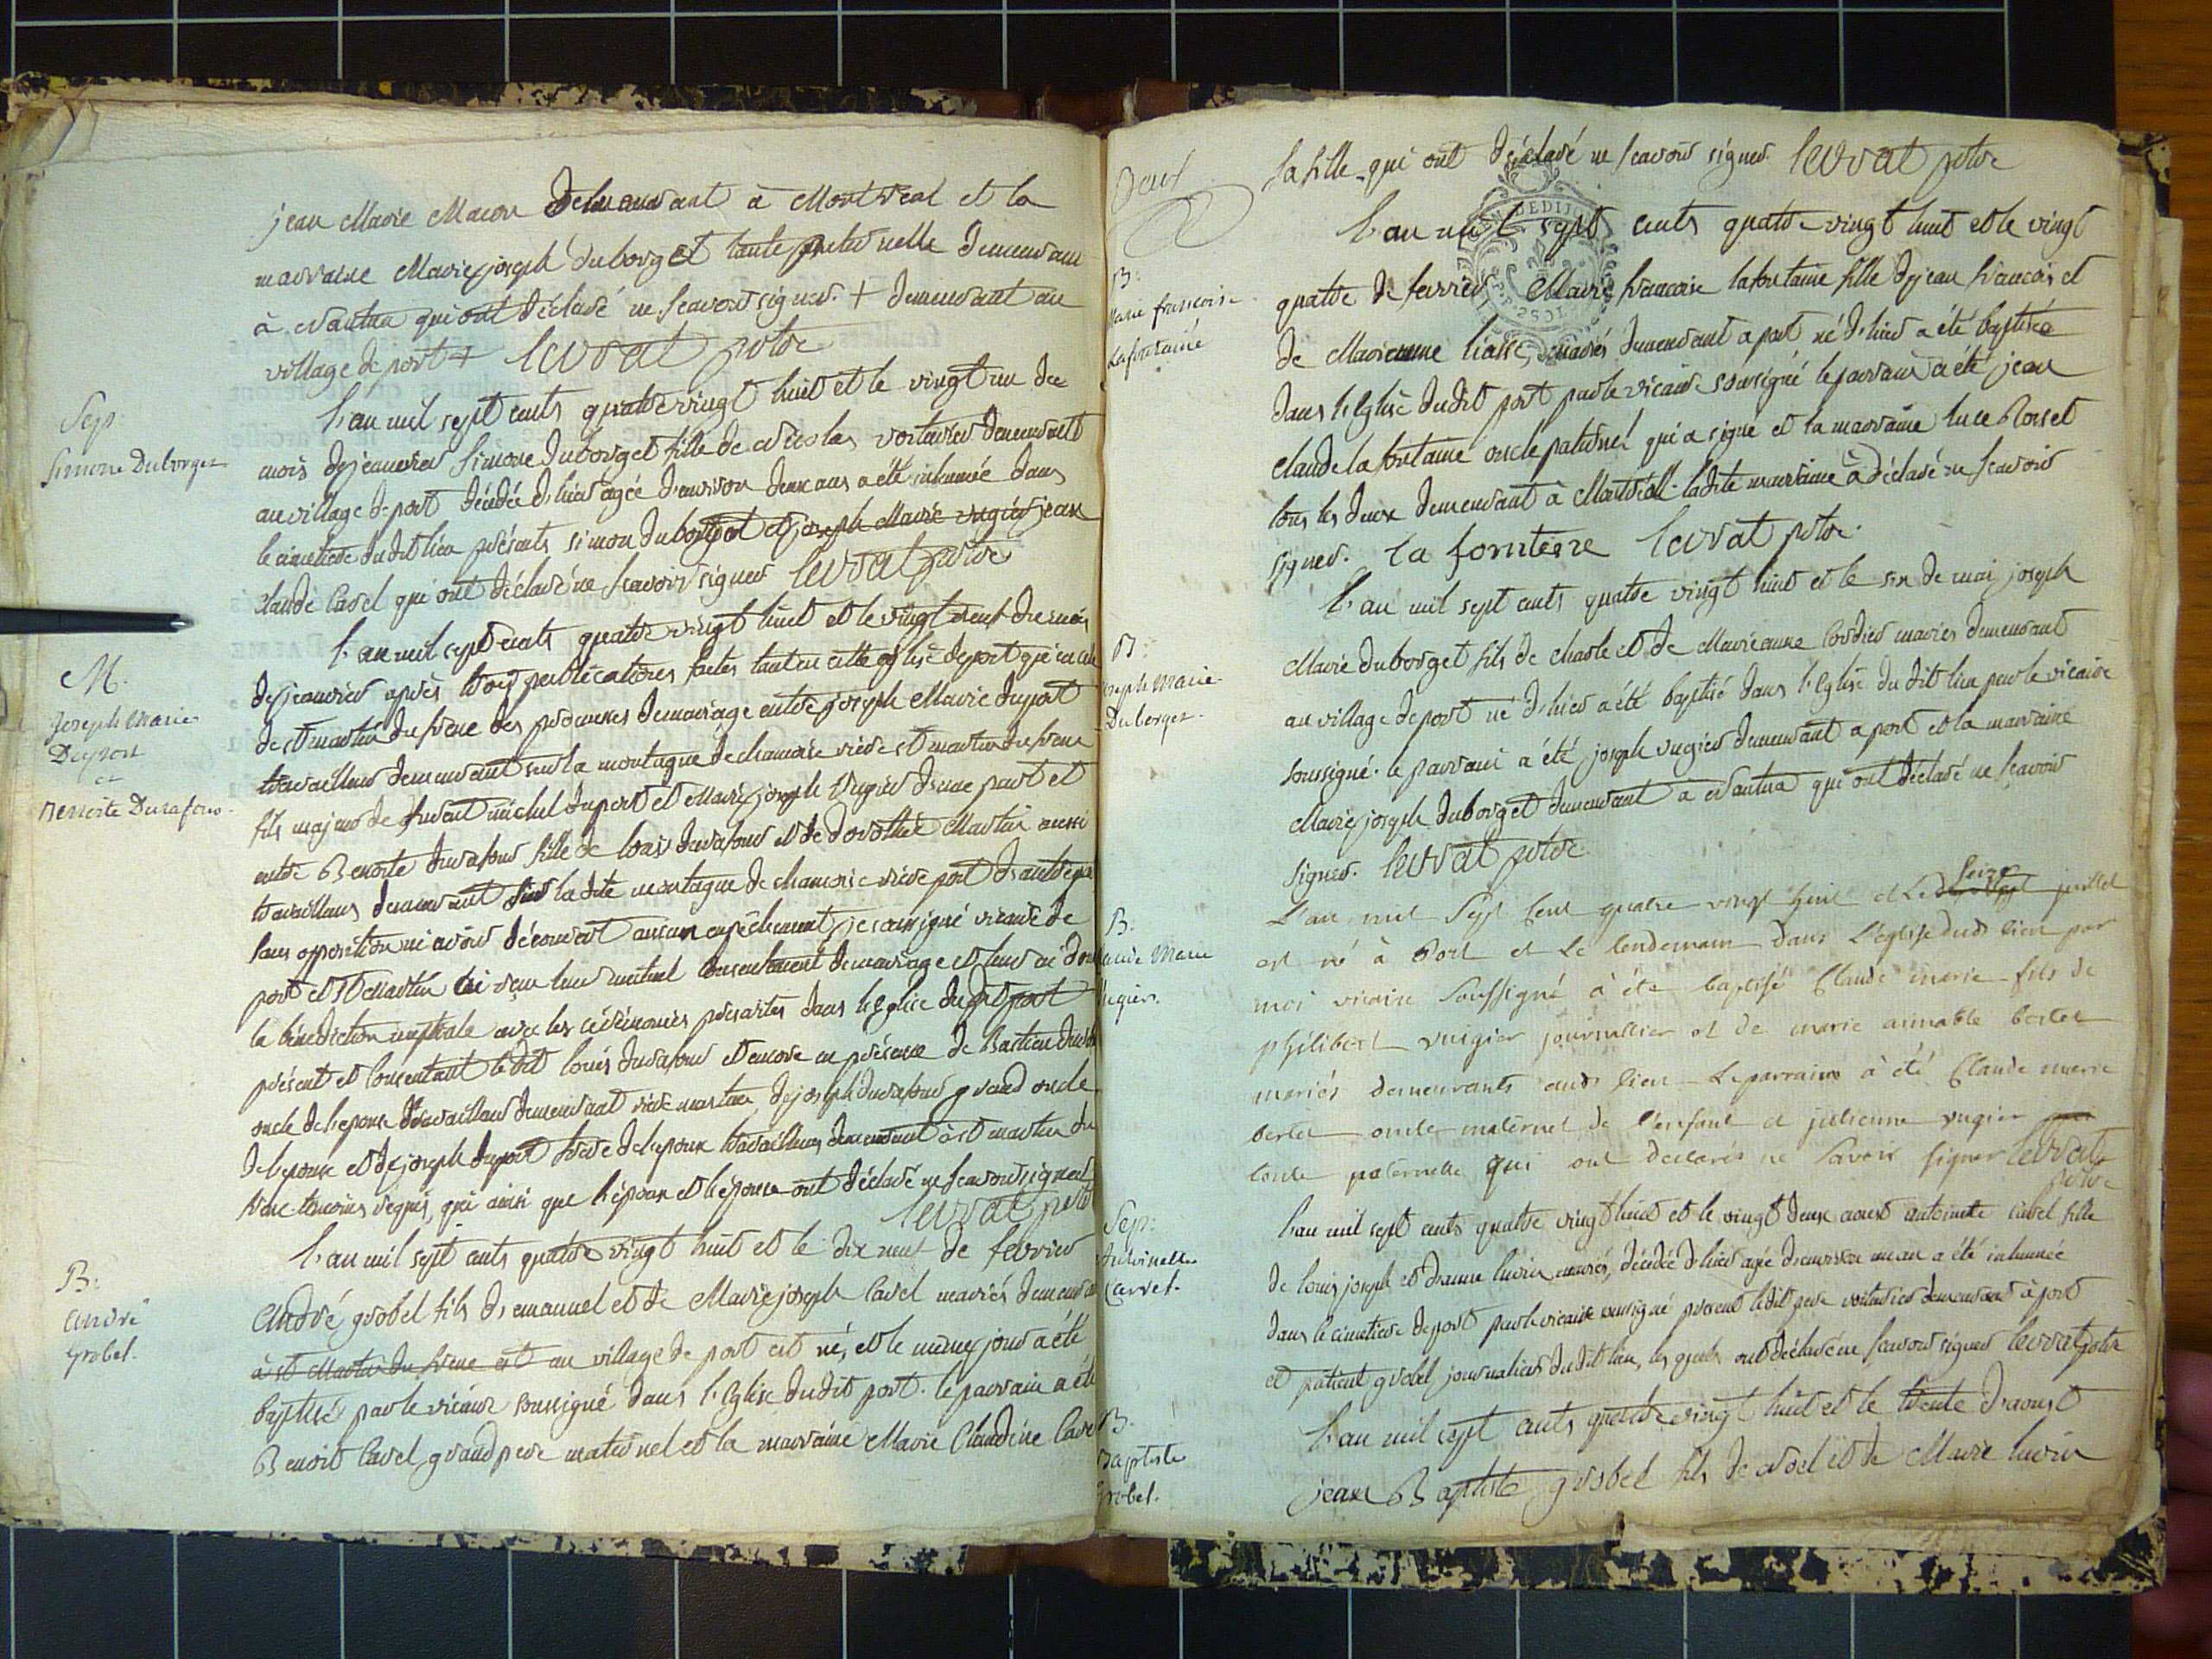 jean Marie Macon demeurant à Montreal et la
marraine Marie joseph duborget tante paternelle demeurant
à Nantua qui ont déclaré ne scavoir signer. + demeurant au
village de port + levrat ptre
Sep.
Simone Duborget
L'an mil sept cents quatre vingt huit et le vingt un du
mois de janvier Simone Duborget fille de Nicolas voiturier demeurant
au village de port décédée d'hier agée d'environ deux ans a été inhumée dans
le cimetiere du dit lieu présents simon duborget et joseph Marie vugier jean
claude Cavel qui ont déclaré ne scavoir signer levrat ptre
M.
Joseph Marie
Duport
et
Benoite Durafour.
L'an mil sept cents quatre vingt huit et le vingt neuf du mois
de janvier après trois publications faites tant en cette eglise de port qu'en celle
de st martin du frene des promesses de mariage entre joseph Marie duport
travailleur demeurant sur la montagne de chamoise rière st martin du frene
fils majeur de michel duport et Marie joseph Vugier d'une part et
entre Benoite durafour fille de Louis durafour et de dorothée Martin aussi
travailleurs demeurant sur la dite montagne de chamoise rière port d'autre part
sans opposition ni avoir découvert aucun empêchement je soussigné vicaire de
port et st Martin ai reçu leur mutuel consentement de mariage et leur ai donné
la bénediction nuptiale avec les cérémonies prescrites dans l'Eglise du dit port
présent et consentant le dit Louis durafour et encore en présence de Bastien
oncle de l'epouse travailleur demeurant rière martin, de joseph durafour grand oncle
de l'epouse et de joseph duport frere de l'epoux travailleurs demeurant à st martin du
frene temoins requis, qui ainsi que l'époux et l'épouse ont déclaré ne scavoir signer
levrat ptre
B:
André
grobel.
L'an mil sept cents quatre vingt huit et le dix neuf de fevrier
André grobel fils d'emanuel et de Marie joseph Cavel mariés demeurant
à st Martin du frene et au village de port est né, et le meme jour a été
baptisé par le vicaire soussigné dans l'Eglise du dit port. le parrain a été
Benoit Cavel grand pere maternel et la marraine Marie Claudine Cavel
Deux
sa fille qui ont déclaré ne scavoir signer. levrat ptre
B:
Marie francoise
Lafontaine
L'an mil sept cents quatre vingt huit et le vingt
quatre de fevrier Marie francoise lafontaine fille de jean francois et
de Marieanne liasse, mariés demeurant a port né d'hier a été baptisée
dans l'Eglise dudit port par le vicaire soussigné le parrain a été jean
claude lafontaine oncle paternel qui a signé et la marraine
tous les deux demeurant à Montréal. ladite marraine a déclaré ne scavoir
signer. La fonteine levrat ptre.
B:
Joseph Marie
Duborget.
L'an mil sept cents quatre vingt huit et le six de mai joseph
Marie duborget fils de charle et de Marieanne Cordier mariés demeurant
au village de port né d'hier a été baptisé dans l'Eglise du dit lieu par le vicaire
soussigné. le parrain a été joseph vugier demeurant a port et la marraine
Marie joseph duborget demeurant a Nantua qui ont déclaré ne scavoir
signer. levrat ptre.
B:
Claude Marie
Vugier.
L'an mil Sept Cent quatre vingt huit et le seize juillet
est né à Port et Le lendemain dans L'église dud lieu par
moi vicaire Soussigné à été baptisé Claude marie fils de
philibert vuigier journallier et de marie aimable berlet
mariés demeurants aud lieu Le parrain à été Claude marie
berlet oncle maternel de l'enfant et julienne vugier
tante paternelle qui ont declarés ne Savoir signer levrat
ptre
Sep:
Antoinette
Carvel.
L'an mil sept cents quatre vingt huit et le vingt deux aoust antoinette cavel fille
de louis joseph et d'anne luvin mariés, décédée d'hier agée d'environ un an a été inhumée
dans le cimetiere de port par le vicaire soussigné présent ledit pere voiturier demeurant à port
et patient grobel journalier du dit lieu, les quels ont déclaré ne scavoir signer levrat ptre
B.
Baptiste
Grobel.
L'an mil sept cents quatre vingt huit et le trente d'aoust
jean Baptiste grobel fils de Noel et de Marie luvin